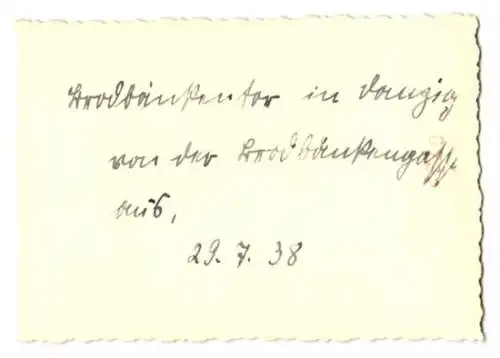 Brodbänkentor in Danzig
von der Brodbänkengasse
aus,
29. 7. 38